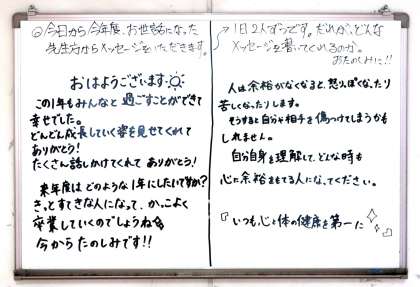 ◎今日から今年度、お世話になった
先生方からメッセージをいただきます。
→1日2人ずつです。だれが、どんな
メッセージを書いてくれるのか。
おたのしみに!!
おはようございます
この1年もみんなと過ごすことができて
幸せでした。
どんどん成長していく姿を見せてくれて
ありがとう!
たくさん話しかけてくれて ありがとう!
来年度は どのような1年にしたいですか?
きっとすてきな人になって、かっこよく
卒業していくのでしょうね
今から たのしみです!!
人は余裕がなくなると、怒りぽくなったり
苦しくなったりします。
そうすると自分や相手を傷つけてしまうかも
しれません。
自分自身を理解して、どんな時も
心に余裕をもてる人になってください。
『いつも心と体の健康を第一に